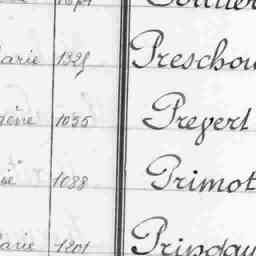 arie 1325 Preschou
gène 1035 Prevert
se 1088 Primot
arie 1201 Pringau